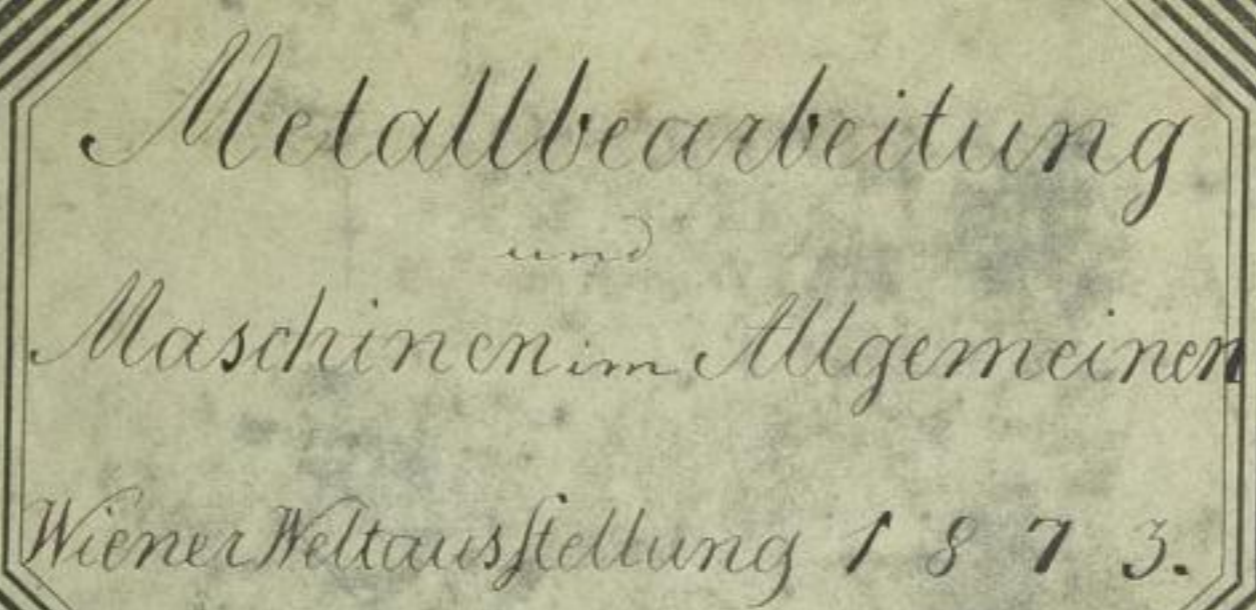 Metallbearbeitung
und
Maschinen im Allgemeinen
Wiener Weltausſtellung 1873.